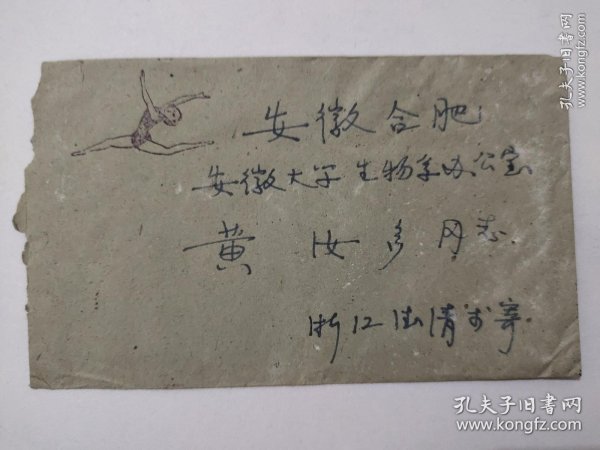 安徽合肥
安徽大学生物系办公室
黄汝多同志
浙江德清 寄
孔夫子旧书网
www.kongfz.com
孔夫子旧书网
www.kongfz.com